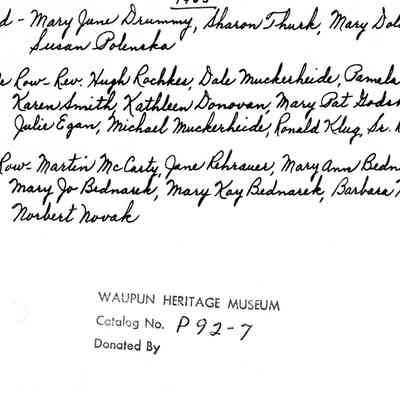 d - Mary Jane Drummy, Sharon Thurk, Mary Dol
Susan Polenska
e Row - Rev. Hugh Rochkes, Dale Muckerheide, Pamela
Karen Smith, Kathleen Donovan, Mary Pat Gods
Julie Egan, Michael Muckerheide, Ronald Klug, Sr.
Row - Martin McCarty, Jane Rehrauer, Mary Ann Bedn
Mary Jo Bednarek, Mary Kay Bednarek, Barbara
Norbert Novak
WAUPUN HERITAGE MUSEUM
Catalog No. P92-7
Donated By